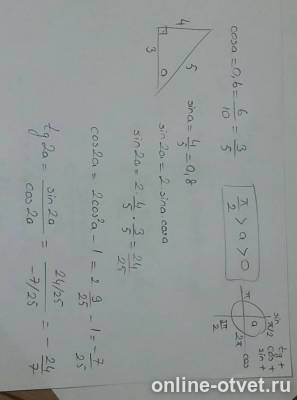 cosa = 0,6 = 6/10 = 3/5
π/2 > a > 0
4
3
5
a
sina = 4/5 = 0,8
sin2a = 2 sina cosa
sin2a = 2 · 4/5 · 3/5 = 24/25
cos2a = 2cos²a - 1 = 2 9/25 - 1 = -7/25
tg2a = sin2a/cos2a = 24/25/-7/25 = - 24/7
tg +
cos +
sin +
sin
π/2
π
a
2π
cos
online-otvet.ru